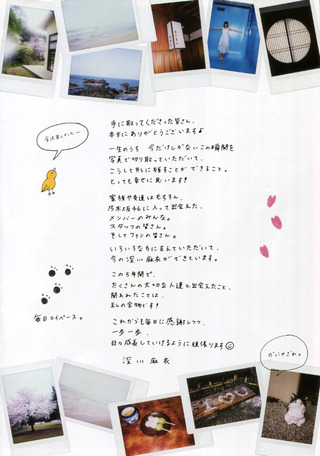 手に取ってくださった皆さん、
本当にありがとうございます♪
一生のうち 今だけしかないこの瞬間を
写真で切り取っていただいて、
こうして形に残すことができること。
とっても幸せに思います!
家族や友達はもちろん、
乃木坂46に入って出会えた、
メンバーのみんな。
スタッフの皆さん。
そしてファンの皆さん。
いろいろな方に支えていただいて、
今の深川麻衣ができています。
この5年間で、
たくさんの大切な人達と出会えたこと、
関われたことは、
私の宝物です!
毎日マイペース。
これからも毎日に感謝しつつ、
一歩一歩、
日々成長していけるように頑張ります
深川 麻衣